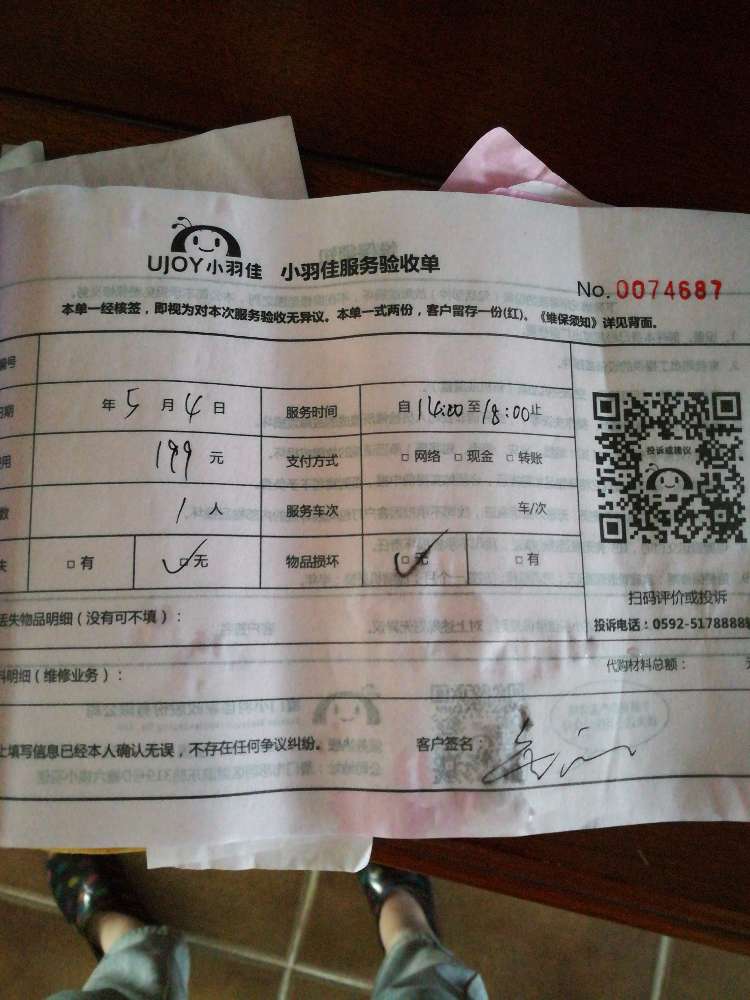 UJOY小羽佳 小羽佳服务验收单
No. 0074687
本单一经核签，即视为对本次服务验收无异议。本单一式两份，客户留存一份(红)。《维保须知》详见背面。
编号
日期 年 5 月 4 日 服务时间 自 14:00 至 18:00 止
费用 199 元 支付方式 □ 网络 □ 现金 □ 转账
数 1 人 服务车次 车/次
失 □ 有 □ 无 物品损坏 □ 无 □ 有
投诉或建议
扫码评价或投诉
丢失物品明细（没有可不填）：
投诉电话：0592-5178888
料明细（维修业务）：
代购材料总额：
上填写信息已经本人确认无误，不存在任何争议纠纷。 客户签名：